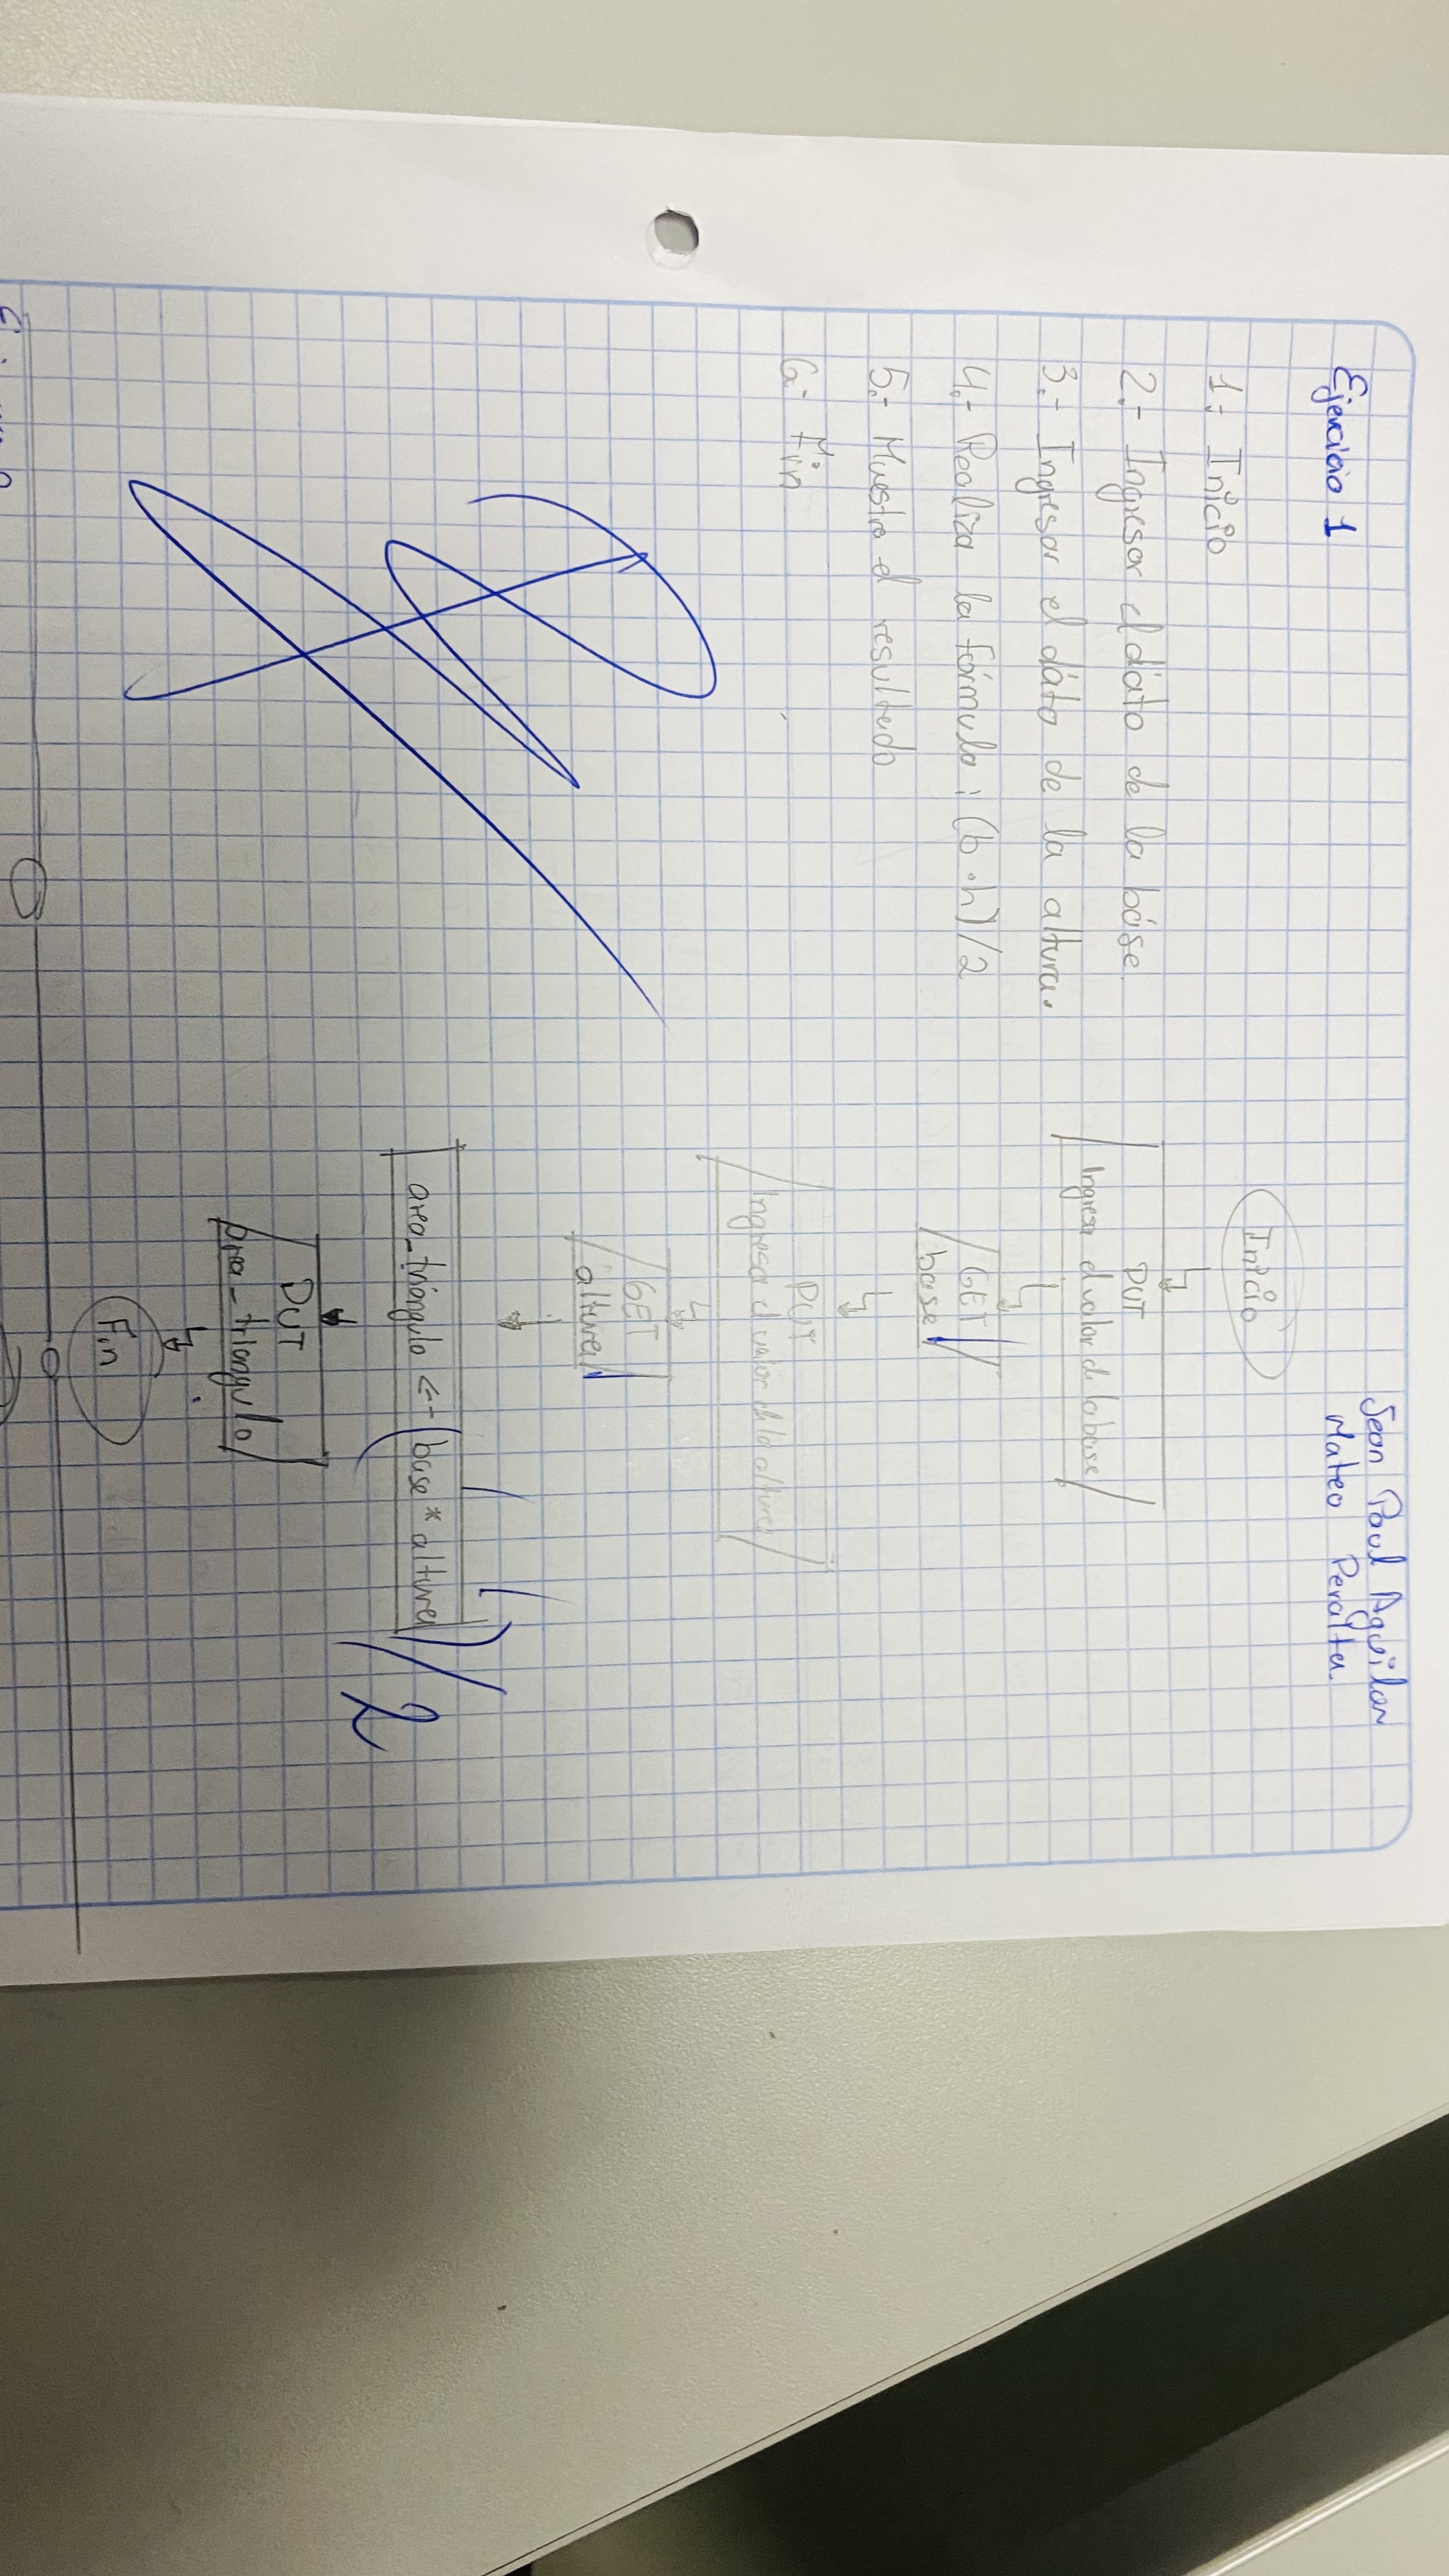 Jean Paul Aguilar
Mateo Peralta.
Ejercicio 1
1.- Inicio
2.- Ingresar el dato de la base.
3.- Ingresar el dato de la altura.
4.- Realiza la fórmula: (b·h)/2
5.- Muestra el resultado
6.- Fin
Inicio
PUT
Ingresa el valor de la base
GET
base
PUT
Ingresa el valor de la altura
GET
altura
area_triangulo <- (base * altura)/2
PUT
area_triangulo
Fin